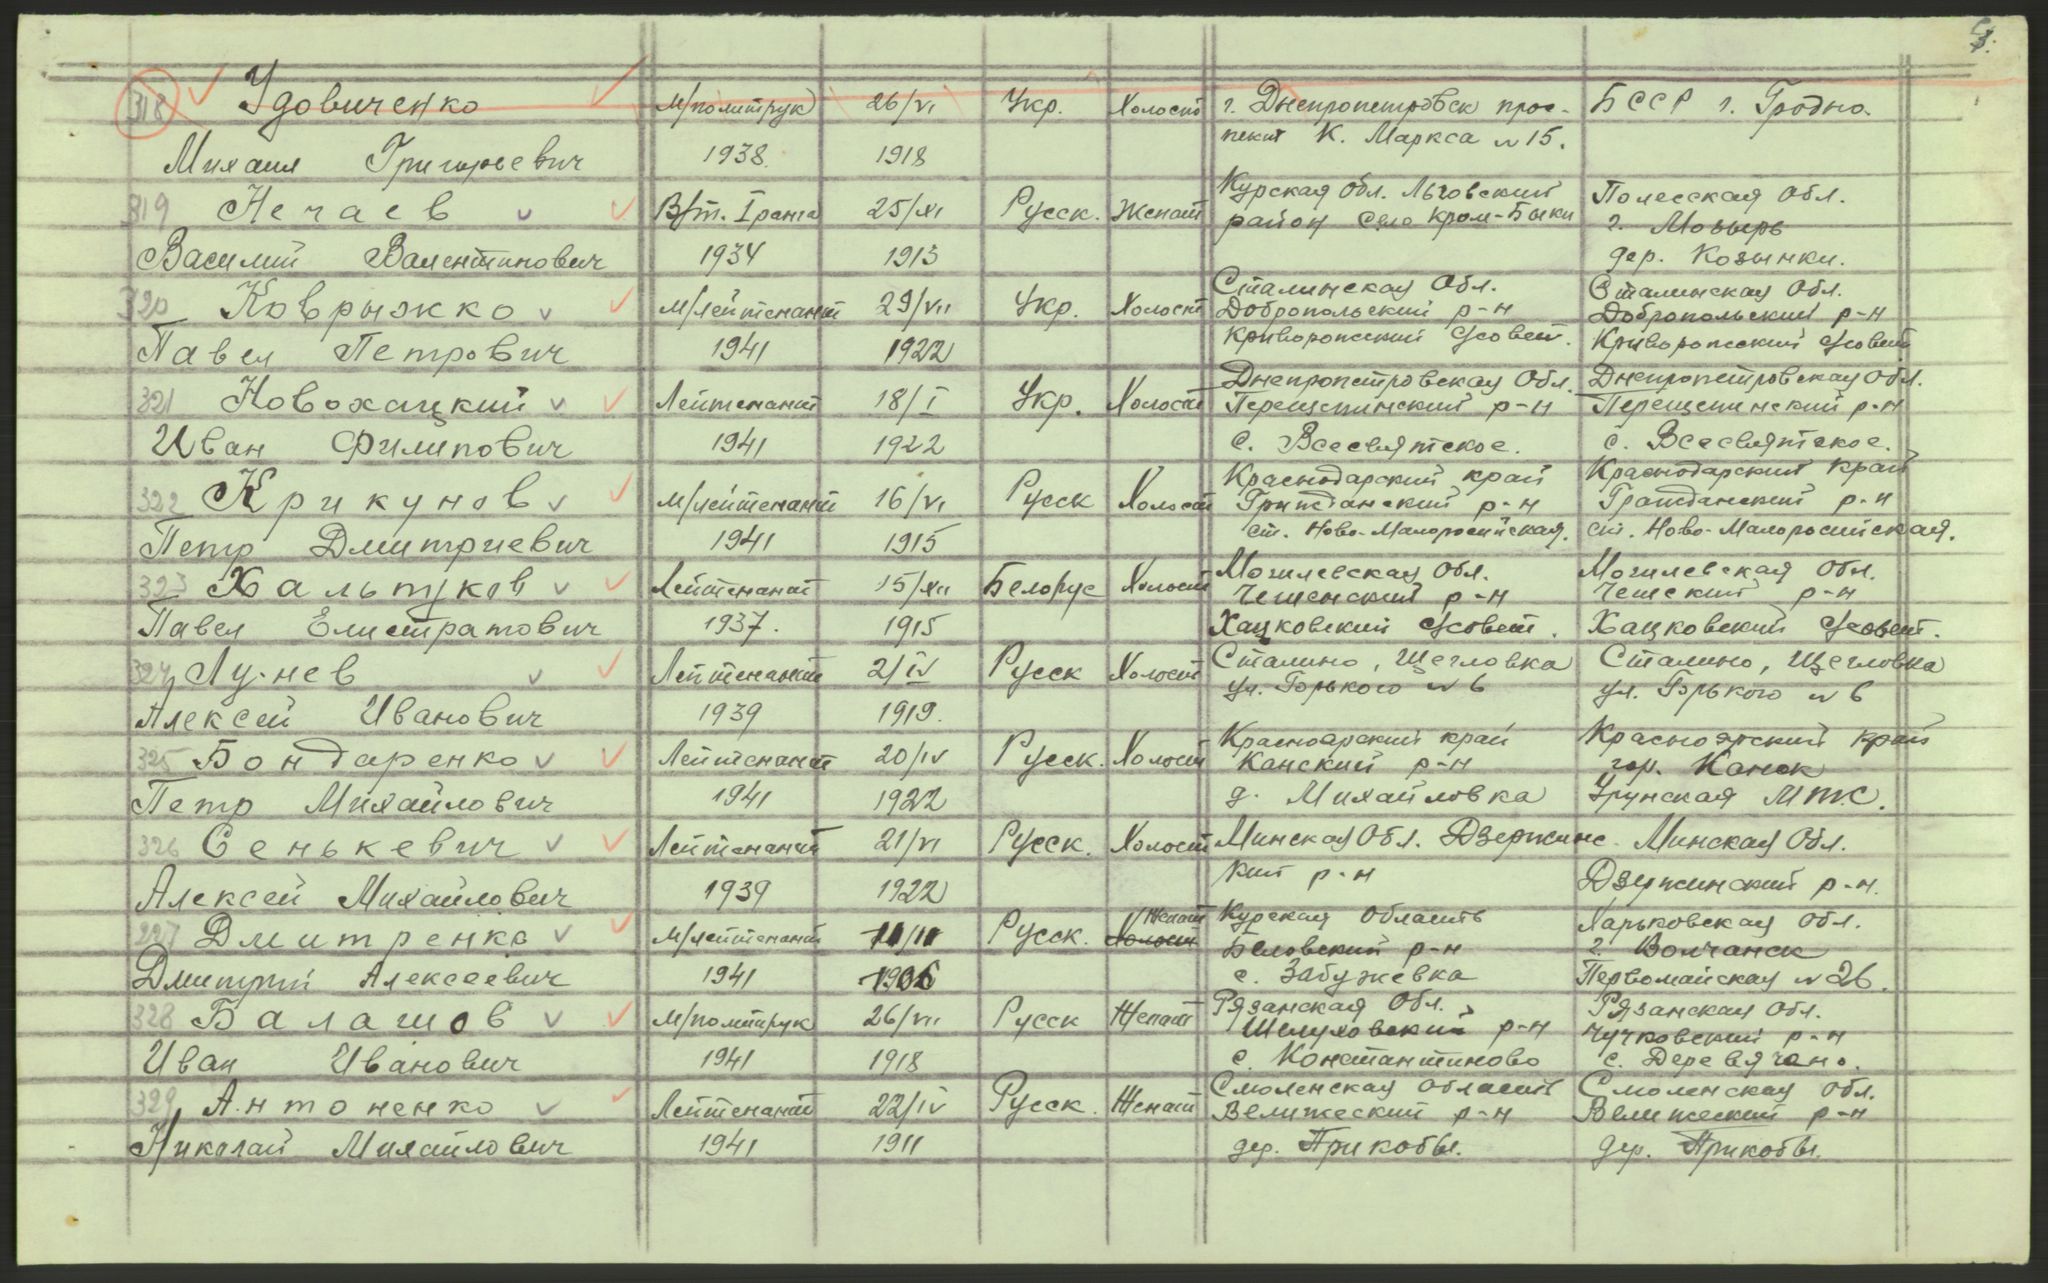 318 Удовиченко м/политрук 26/VI Укр. Холост г. Днепропетровск прос- БССР г. Гродно.
пект К. Маркса №15.
Михаил Григорьевич 1938. 1918
Курская Обл. Льговский Полесская Обл.
319 Нечаев В/т. I ранга 25/XI Русск. Женат район Село Кром-Быки г. Мозырь
Василий Валентинович 1934 1913 дер. Козынки.
Сталинская Обл. Сталинская Обл.
320 Коврыжко м/лейтенант 29/VII Укр. Холост Добропольский р-н Добропольский р-н
Павел Петрович 1941 1922 Криворожский С/совет. Криворожский С/совет
Днепропетровская Обл. Днепропетровская Обл.
321 Новохацкий Лейтенант 18/I Укр. Холост Перещепинский р-н Перещепинский р-н
Иван Филипович 1941 1922 с. Всесвятское. с. Всесвятское.
Краснодарский край Краснодарский край
322 Крикунов м/лейтенант 16/VI Русск Холост Гражданский р-н Гражданский р-н
Петр Дмитриевич 1941 1915 ст. Ново-Малоросийская. ст. Ново-Малоросийская.
Могилевская Обл. Могилевская Обл.
323 Хальпуков Лейтенант 15/XII Белорус Холост Чешенский р-н Чешский р-н
Павел Елистратович 1937. 1915 Хацковский С/совет. Хацковский С/совет.
324 Лунев Лейтенант 2/IV Русск Холост Сталино, Щегловка Сталино, Щегловка
ул. Горького №6 ул. Горького №6
Алексей Иванович 1939 1919.
Красноярский край Красноярский край
325 Бондаренко Лейтенант 20/IV Русск. Холост Канский р-н гор. Канск
Петр Михайлович 1941 1922 д. Михайловка МТС.
326 Сенькевич Лейтенант 21/VI Русск. Холост Минская Обл. Дзержинс- Минская Обл.
кий р-н Дзержинский р-н.
Алексей Михайлович 1939 1922
Женат Курская Область Харьковская Обл.
327 Дмитренко м/лейтенант Русск. Холост Беловский р-н г. Волчанск
Дмитрий Алексеевич 1941 1906 с. Забужевка Первомайская №26.
Рязанская Обл. Рязанская Обл.
328 Балашов м/политрук 26/VII Русск Женат Шелуховский р-н Чучковский р-н
Иван Иванович 1941 1918 с. Константиново с. Деревягино.
Смоленская область Смоленская Обл.
329 Антоненко Лейтенант 22/IV Русск. Женат Велижеский р-н Велижеский р-н
Николай Михайлович 1941 1911 дер. Прикобы. дер. Прикобы.